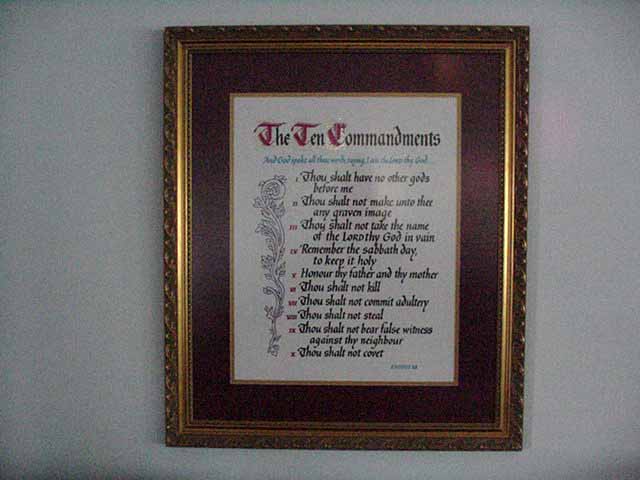 The Ten Commandments
And God spake all these words, saying, I am the LORD thy God...
I Thou shalt have no other gods
before me
II Thou shalt not make unto thee
any graven image
III Thou shalt not take the name
of the LORD thy God in vain
IV Remember the sabbath day,
to keep it holy
V Honour thy father and thy mother
VI Thou shalt not kill
VII Thou shalt not commit adultery
VIII Thou shalt not steal
IX Thou shalt not bear false witness
against thy neighbour
X Thou shalt not covet
EXODUS 20